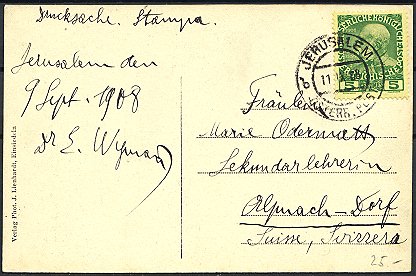 Drucksache. Stampa.
Jerusalem den
9 Sept. 1908
Dr E. Wyman
Fräulein
Marie Odermatt
Sekundarlehrerin
Alpnach-Dorf
Suisse, Svizzera
JERUSALEM
ÖSTERR. POST
5 5
Verlag Phot. J. Lienhardt, Einsiedeln
25-